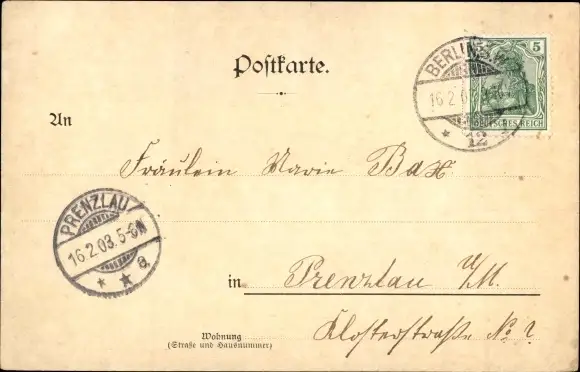 Postkarte.
BERLIN S.W.
16.2.0
12
5
DEUTSCHES REICH
An
Fräulein Marie Bax
PRENZLAU
16.2.03. 5-6N
a.
in Prenzlau U/M.
Klosterstraße No ?
Wohnung
(Straße und Hausnummer)